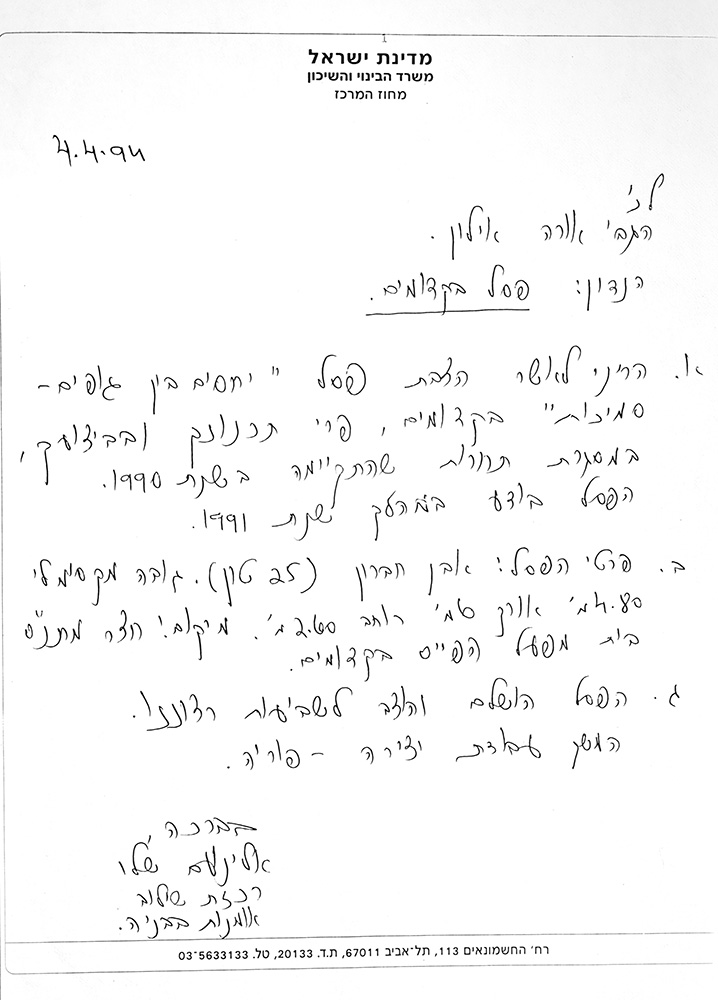 1
מדינת ישראל
משרד הבינוי והשיכון
מחוז המרכז
4.4.94
לכ'
הגב' אורה אילון.
הנדון: פסל בקדומים.
א. הריני לאשר הצבת פסל "יחסים בין גופים -
סמיכות" בקדומים, פרי תכנונך ובביצועך,
במסגרת תחרות שהתקיימה בשנת 1990.
הפסל בוצע במהלך שנת 1991.
ב. פרטי הפסל: אבן חברון (25 טון). גובה מקסימלי
4.80 מ' אורך 6 מ' רוחב 2.60 מ'. מיקום: חצר מתנ"ס
בית מפעל הפייס בקדומים.
ג. הפסל הושלם והוצב לשביעות רצוננו.
המשך עבודת יצירה - פוריה.
בברכה,
אלינעם שלו
רכזת שילוב
אומנות בבניה.
רח' החשמונאים 113, תל־אביב 67011, ת.ד. 20133, טל. 03־5633133